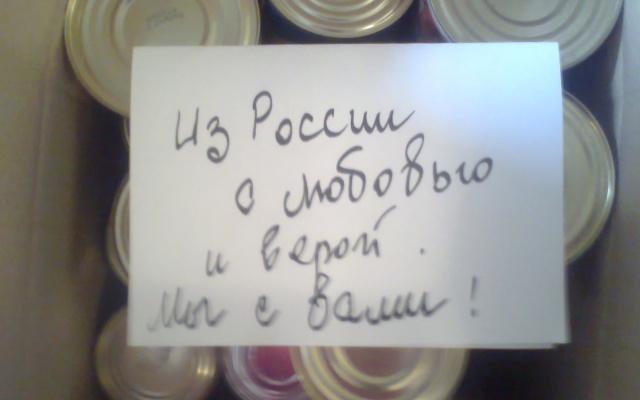 Из России
с любовью
и верой.
Мы с вами!